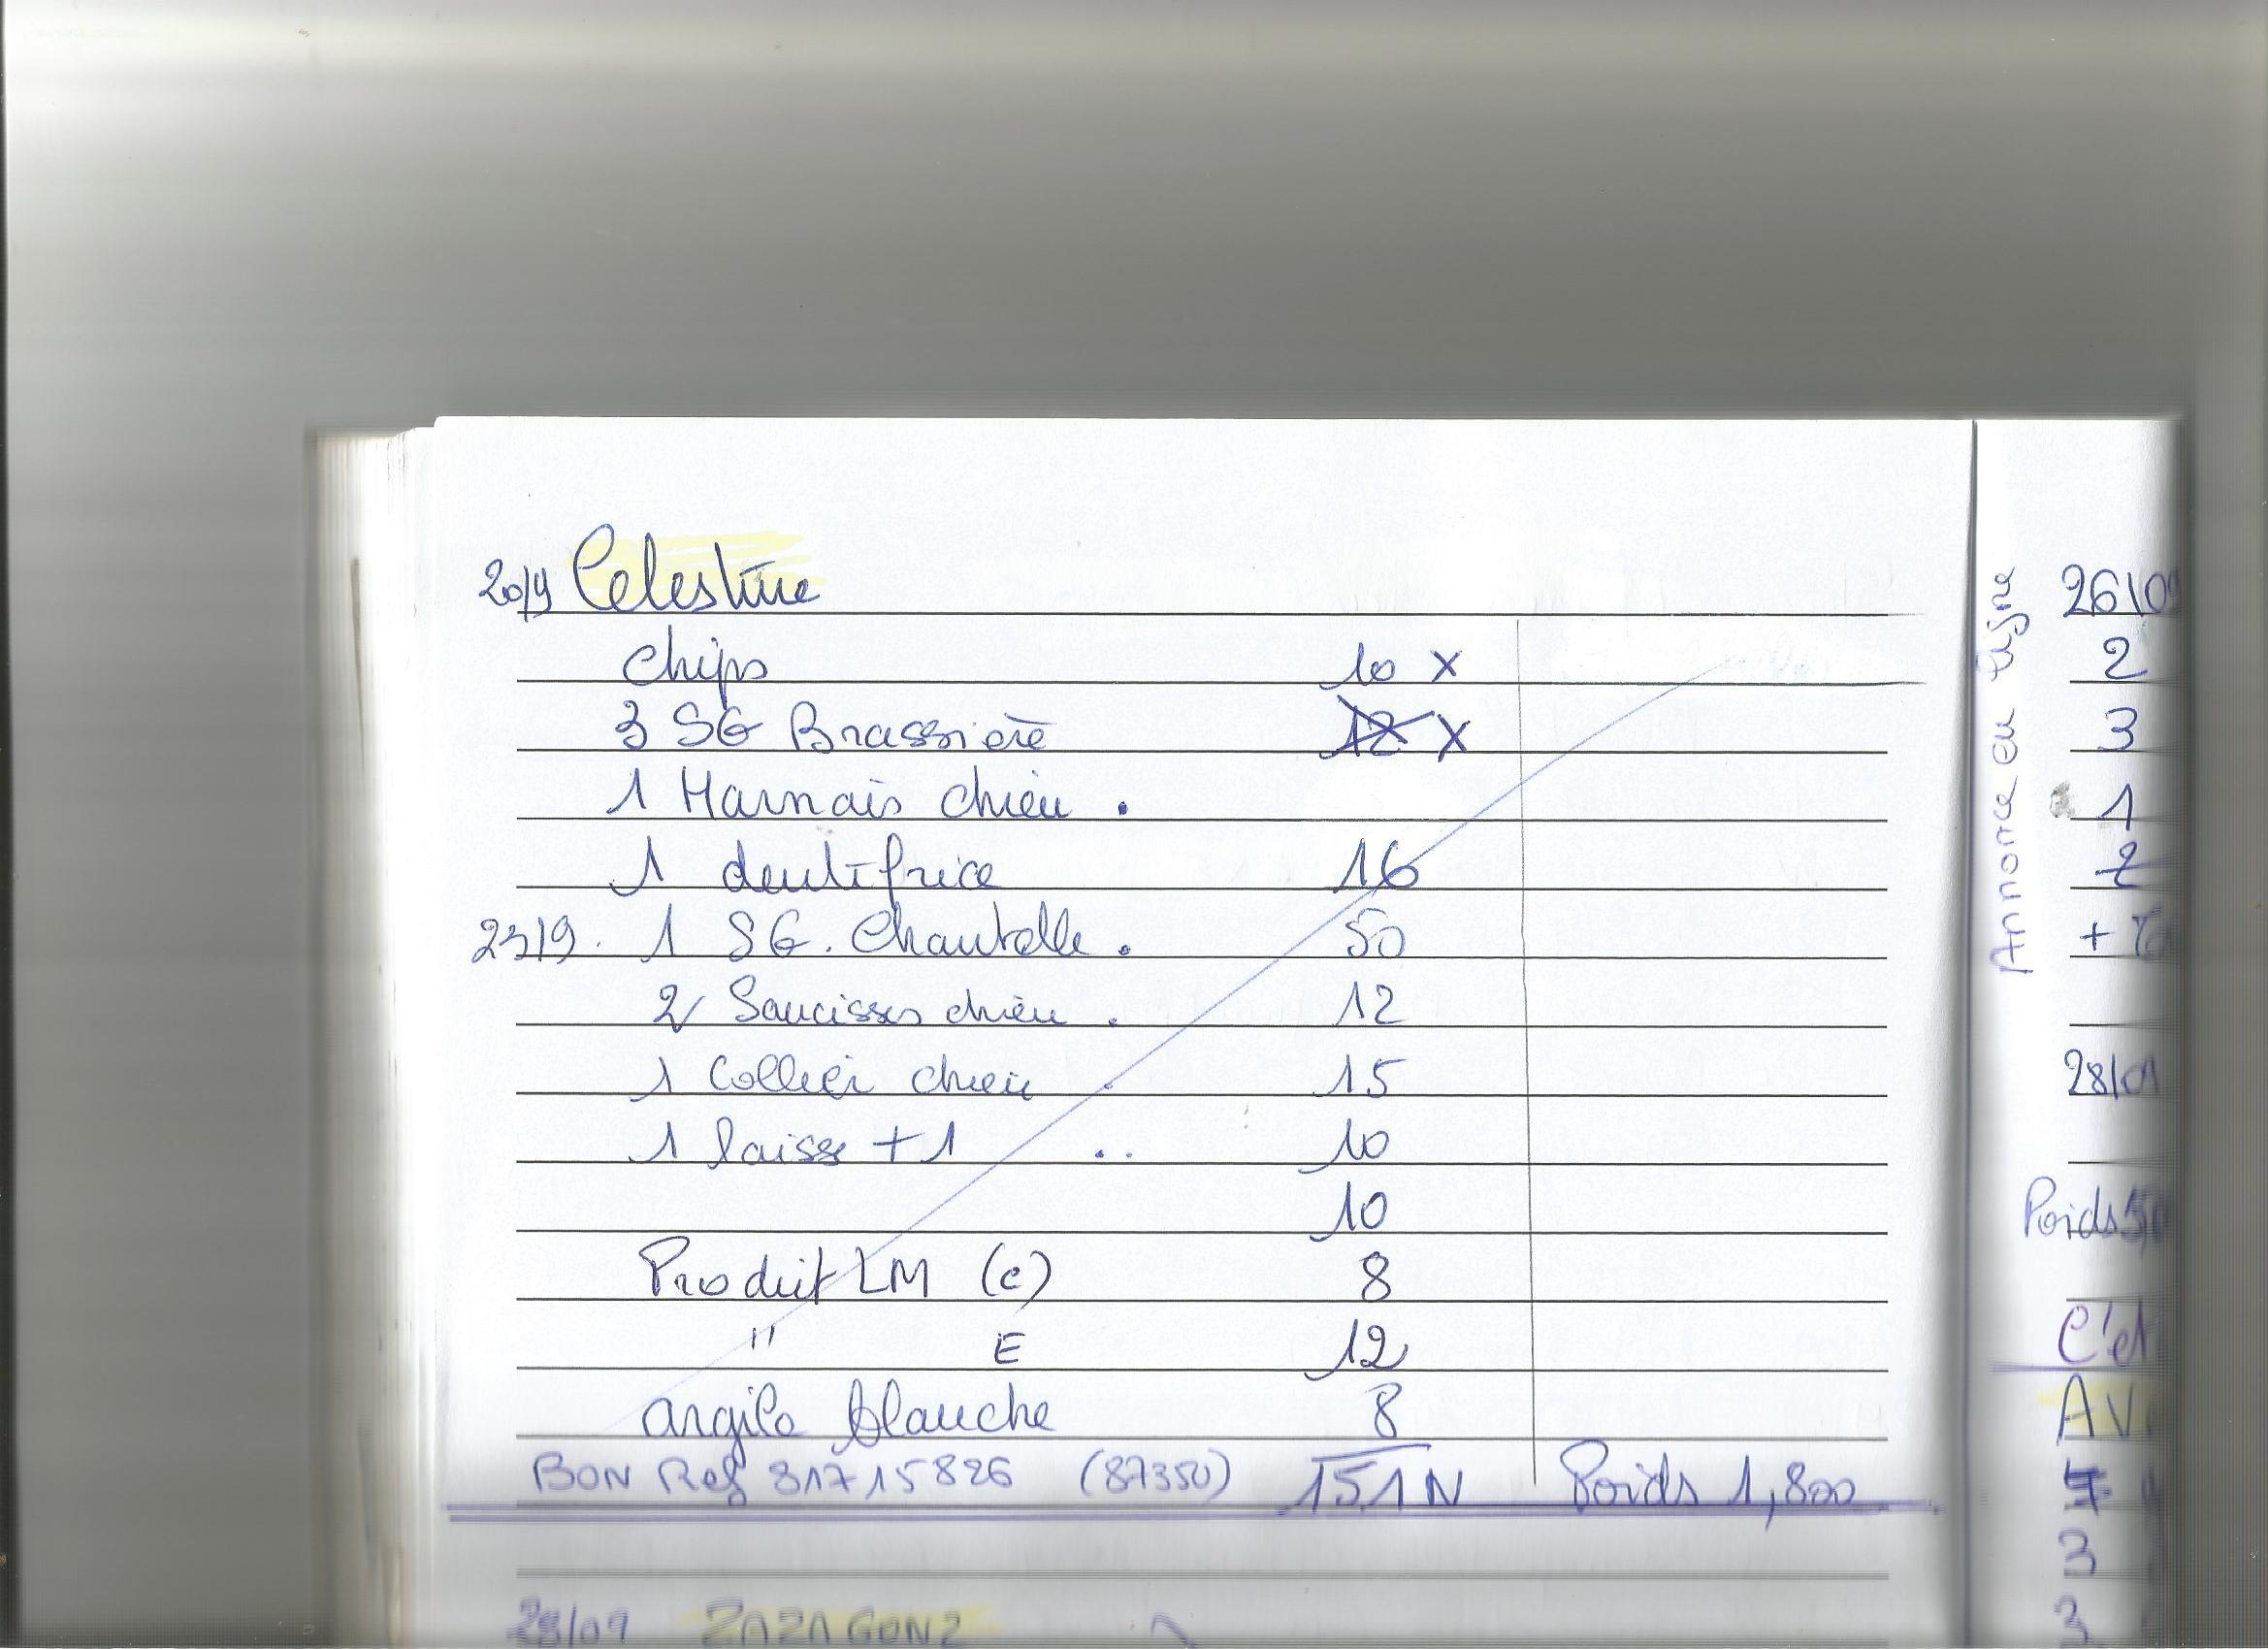 20/9 Celestine
chips 10 X
3 SG Brassière X
1 Harnais chien .
1 dentifrice 16
23/9. 1 SG. Chantelle . 50
2 Saucisses chien . 12
1 Collier chien . 15
1 laisse +1 .. 10
10
Produit LM (c) 8
" E 12
argile blanche 8
BON Ref 31715826 (87350) 151 N Poids 1,800
28/09 ZAZA GONZ
Annonce en ligne
26/09
2
3
1
2
+
28/09
Poids
C'et
AV
3
3